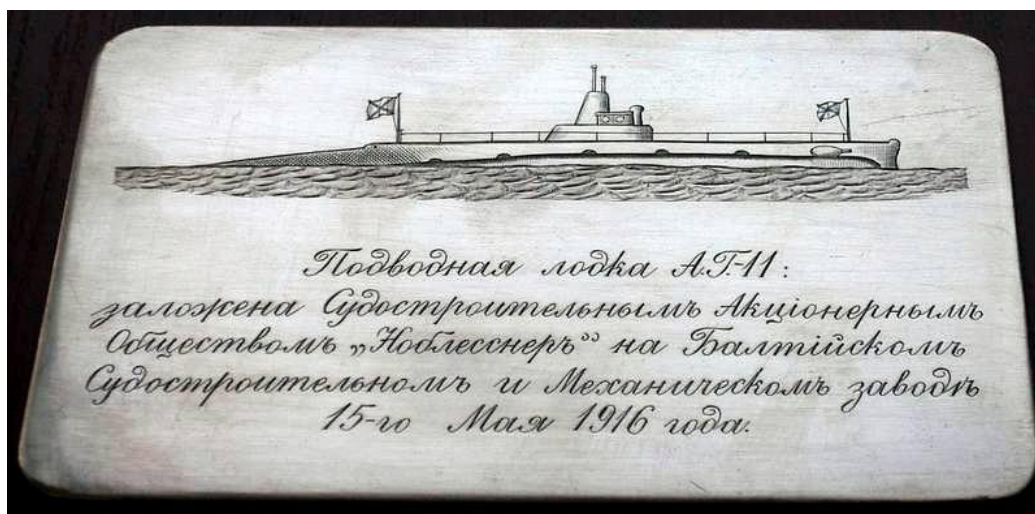 Подводная лодка А.Г-11:
заложена Судостроительнымъ Акціонернымъ
Обществомъ „Ноблесснеръ“ на Балтійскомъ
Судостроительномъ и Механическомъ заводѣ
15-го Мая 1916 года.